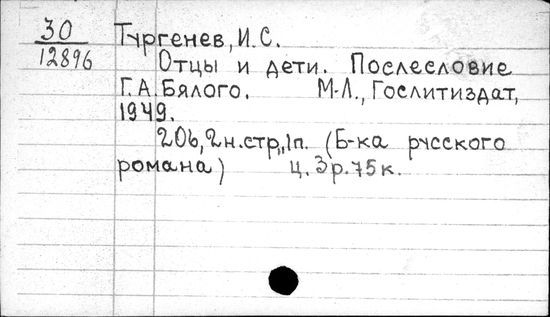 30
12896
Тургенев, И.С.
Отцы и дети. Послесловие
Г.А. Бялого. М-Л., Гослитиздат,
1949.
206, 2н.стр., 1п. (Б-ка русского
романа) ц. 3р.75к.